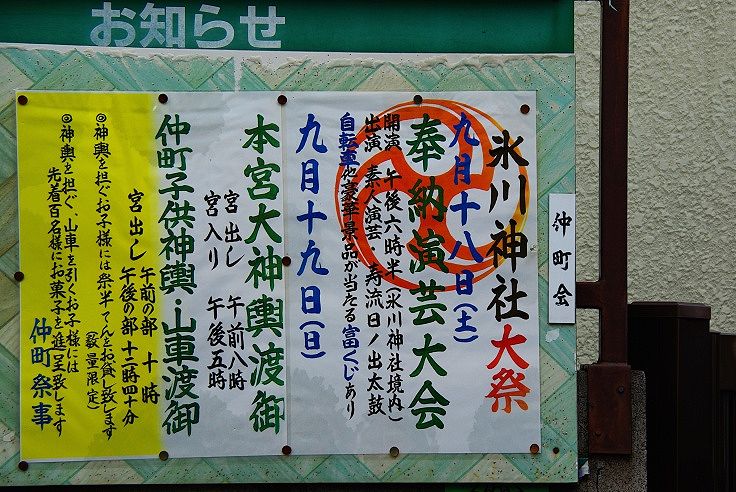 お知らせ
氷川神社大祭
九月十八日(土)
奉納演芸大会
開演 午後六時半(氷川神社境内)
出演 素人演芸・寿流日ノ出太鼓
自転車や豪華景品が当たる富くじあり
九月十九日(日)
本宮大神輿渡御
宮出し 午前八時
宮入り 午後五時
仲町子供神輿・山車渡御
宮出し 午前の部 十時
午後の部 十二時四十分
◎神輿を担ぐお子様には祭半てんをお貸し致します
(数量限定)
◎神輿を担ぐ、山車を引くお子様には
先着百名様にお菓子を進呈致します
仲町祭事
仲町会